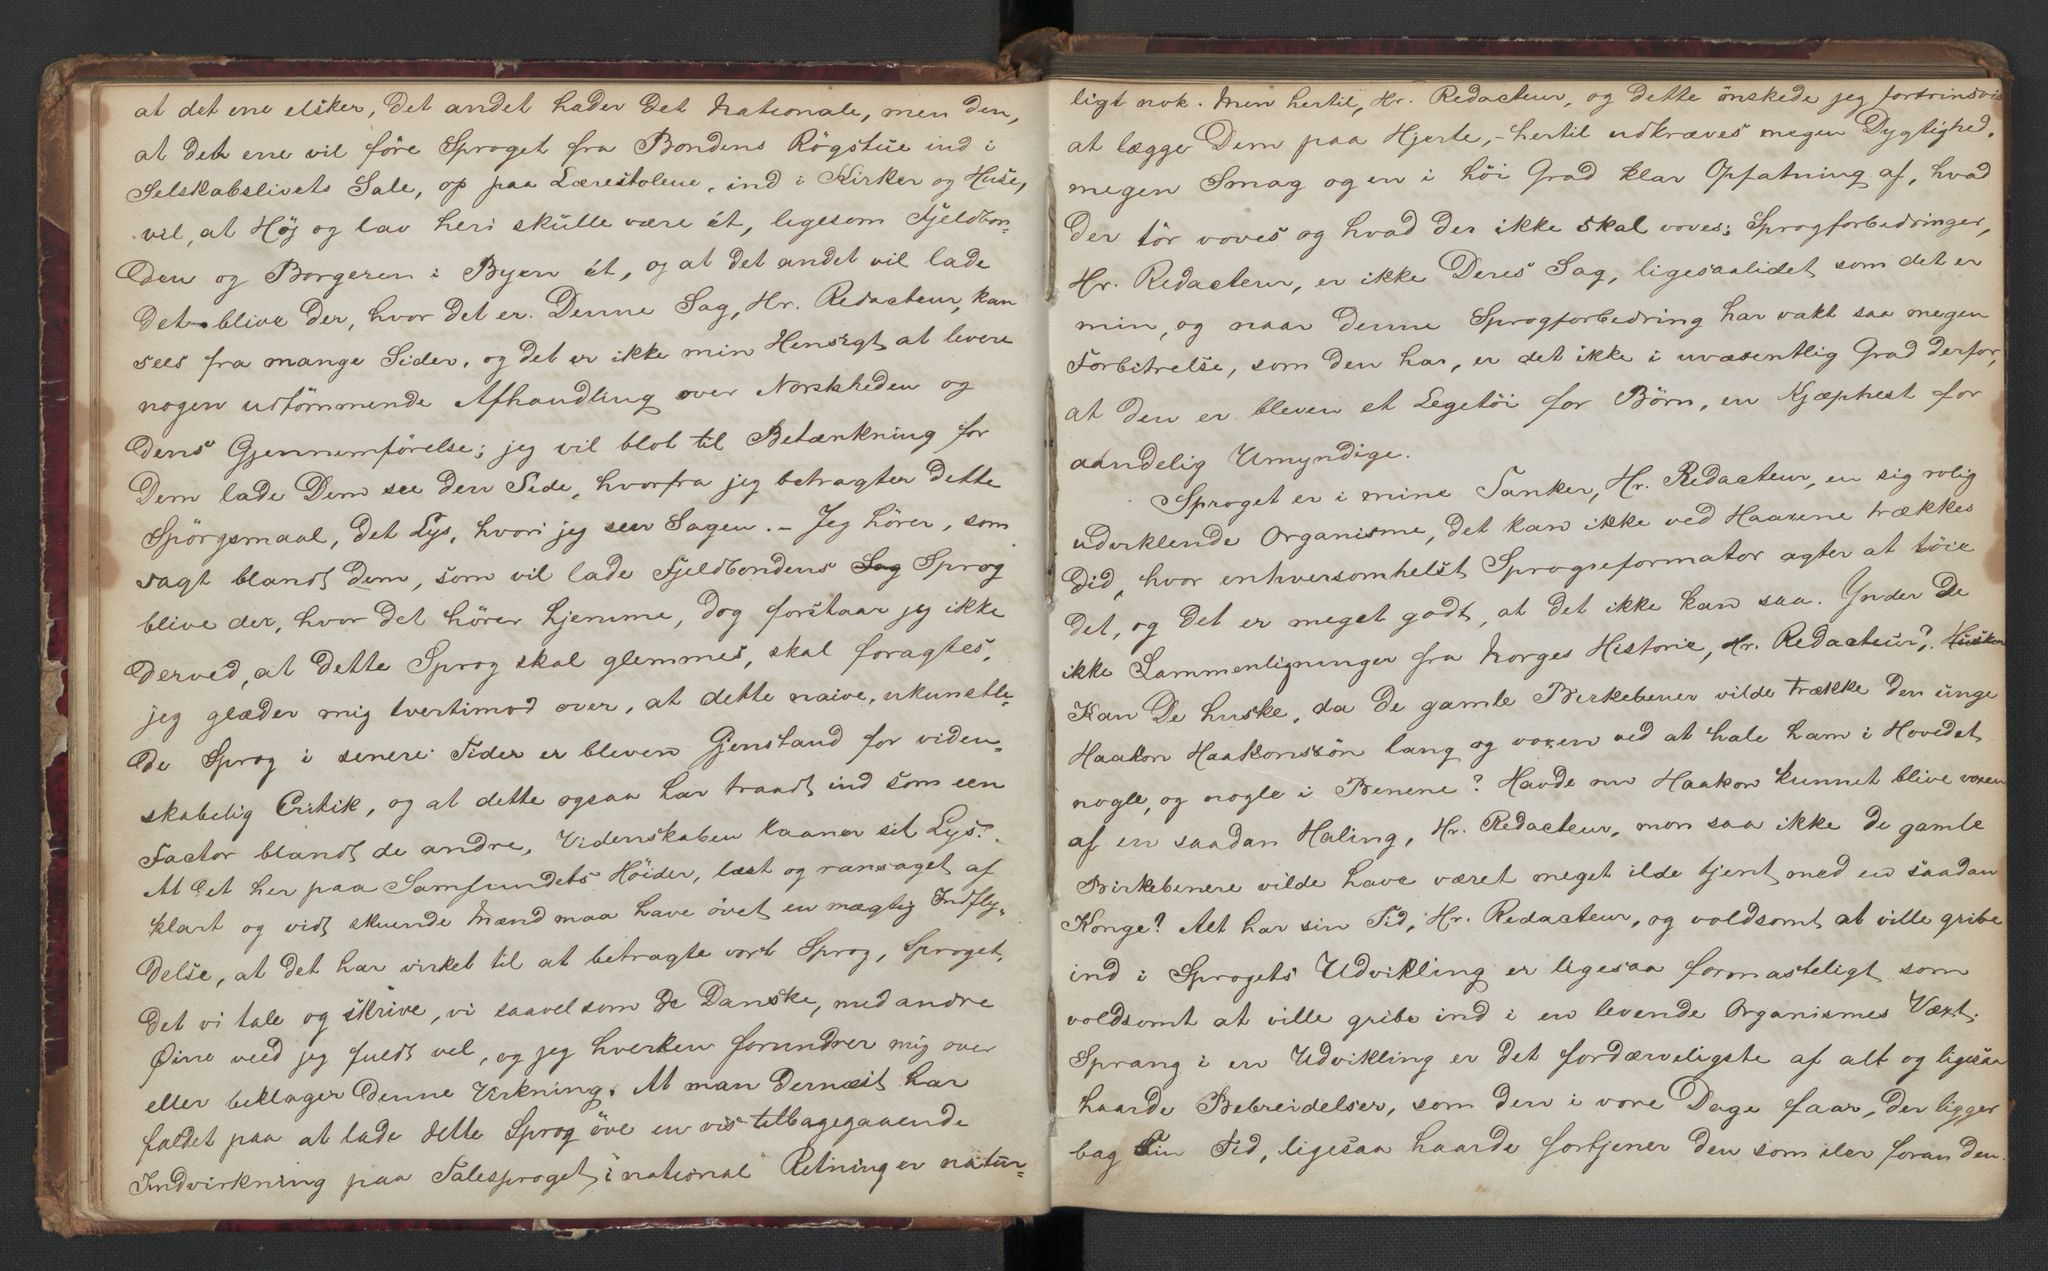 at det ene elsker, det andet hader det Nationale, men den,
at det ene vil føre Sproget fra Bondens Røgstue ind i
Selskabslivets Sale, op paa Lærestolene, ind i Kirker og Huse,
vil, at Høj og lav heri skulle være ét, ligesom Fjeldbon-
den og Borgeren i Byen ét, og at det andet vil lade
det blive der, hvor det er. Denne Sag, Hr. Redacteur, kan
sees fra mange Sider, og det er ikke min Hensigt at levere
nogen udtømmende Afhandling over Norskheden og
dens Gjennemførelse; jeg vil blot til Betænkning for
Dem lade Dem see den Side, hvorfra jeg betragter dette
Spørgsmaal, det Lys, hvori jeg seer Sagen. – Jeg hører, som
sagt blandt dem, som vil lade Fjeldbondens Sag Sprog
blive der, hvor det hører hjemme, dog forstaar jeg ikke
derved, at dette Sprog skal glemmes, skal foragtes,
jeg glæder mig tvertimod over, at dette naive, ukunstle-
de Sprog i senere Tider er bleven Gjenstand for viden-
skabelig Critik, og at dette ogsaa har traadt ind som een
Factor blandt de andre, Videnskaben laaner sit Lys.
At det her paa Samfundets Høider, læst og ransaget af
klart og vidt skuende Mænd maa have øvet en mægtig Indfly-
delse, at det har virket til at betragte vort Sprog, Sproget,
det vi tale og skrive, vi saavel som de Danske, med andre
Øine veed jeg fuldt vel, og jeg hverken forundrer mig over
eller beklager denne Virkning. At man dernæst har
faldet paa at lade dette Sprog øve en vis tilbagegaaende
Indvirkning paa Talesproget i national Retning er natur-
ligt nok. Men hertil, Hr. Redacteur, og dette ønskede jeg fortrinsvis
at lægge Dem paa Hjerte, – hertil udkræves megen Dygtighed,
megen Smag og en i høi Grad klar Opfatning af, hvad
der tør voves og hvad der ikke skal voves; Sprogforbedringer,
Hr. Redacteur, er ikke Deres Sag, ligesaalidet som det er
min, og naar denne Sprogforbedring har vakt saa megen
Forbitrelse, som den har, er det ikke i uvæsentlig Grad derfor,
at den er bleven et Legetøi for Børn, en Kjæphest for
aandelig Umyndige.
Sproget er i mine Tanker, Hr. Redacteur, en sig rolig
udviklende Organisme, det kan ikke ved Haarene trækkes
did, hvor enhversomhelst Sprogreformator agter at tøie
det, og det er meget godt, at det ikke kan saa. Ynder De
ikke Sammenligninger fra Norges Historie, Hr. Redacteur? Husker
Kan De huske, da de gamle Birkebener vilde trække den unge
Haakon Haakonssøn lang og voxen ved at hale ham i Hovedet
nogle, og nogle i Benene? Havde nu Haakon kunnet blive voxen
af en saadan Haling, Hr. Redacteur, mon saa ikke de gamle
Birkebenere vilde have været meget ilde tjent med en saadan
Konge? Alt har sin Tid, Hr. Redacteur, og voldsomt at ville gribe
ind i Sprogets Udvikling er ligesaa formasteligt som
voldsomt at ville gribe ind i en levende Organismes Væxt.
Sprang i en Udvikling er det fordærveligste af alt og ligesaa
haarde Bebreidelser, som den i vore Dage faar, der ligger
bag sin Tid, ligesaa haarde fortjener den som iler foran den.